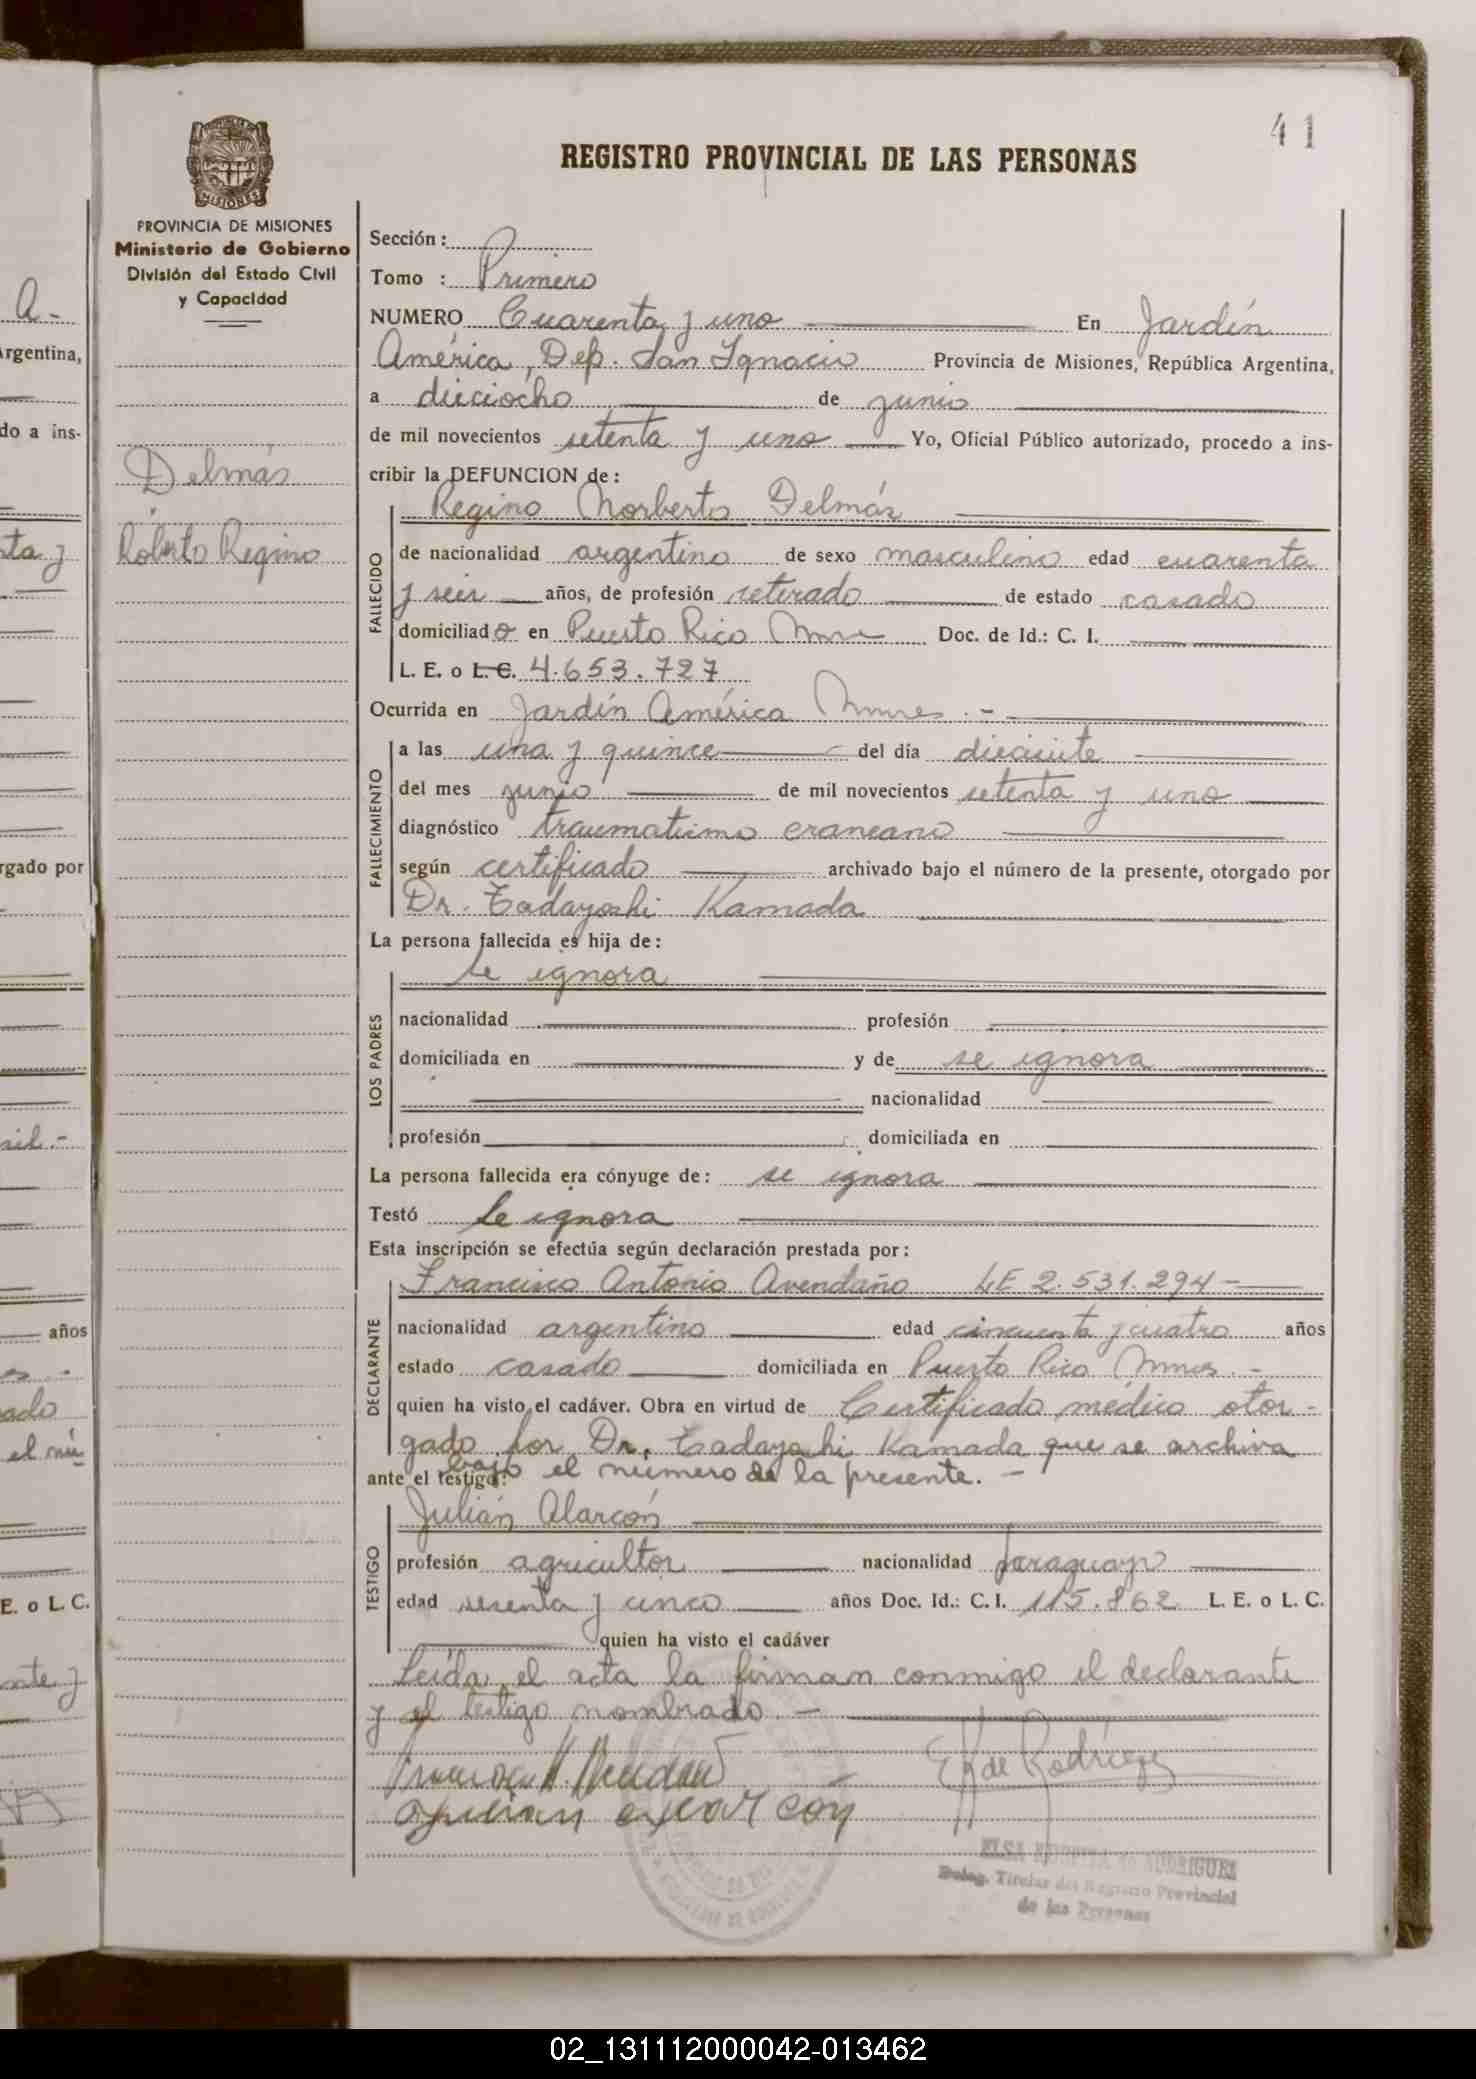 41
REGISTRO PROVINCIAL DE LAS PERSONAS
PROVINCIA DE MISIONES
Ministerio de Gobierno
División del Estado Civil
y Capacidad
Delmás
Roberto Regino
Sección:
Tomo : Primero
NUMERO Cuarenta y uno En Jardín
América, Dep. San Ignacio Provincia de Misiones, República Argentina,
a dieciocho de junio
de mil novecientos setenta y uno Yo, Oficial Público autorizado, procedo a ins-
cribir la DEFUNCION de:
Regino Norberto Delmás
FALLECIDO
de nacionalidad argentino de sexo masculino edad cuarenta
y seis años, de profesión retirado de estado casado
domiciliado en Puerto Rico Mnes Doc. de Id.: C. I.
L. E. o L. C. 4.653.727
Ocurrida en Jardín América Mnnes .-
FALLECIMIENTO
a las una y quince del día diecisiete
del mes junio de mil novecientos setenta y uno
diagnóstico traumatismo craneano
según certificado archivado bajo el número de la presente, otorgado por
Dr. Tadayoshi Kamada
La persona fallecida es hija de:
LOS PADRES
se ignora
nacionalidad profesión
domiciliada en y de se ignora
nacionalidad
profesión domiciliada en
La persona fallecida era cónyuge de: se ignora
Testó Se ignora
Esta inscripción se efectúa según declaración prestada por:
DECLARANTE
Francisco Antonio Avendaño LE 2.531.294-
nacionalidad argentino edad cincuenta y cuatro años
estado casado domiciliada en Puerto Rico Mnnes. -
quien ha visto el cadáver. Obra en virtud de Certificado médico otor-
gado por Dr. Tadayoshi Kamada que se archiva
ante el testigo: bajo el número de la presente. -
TESTIGO
Julián Alarcón
profesión agricultor nacionalidad paraguayo
edad sesenta y cinco años Doc. Id.: C. I. 115.862 L. E. o L. C.
quien ha visto el cadáver
Leída el acta la firman conmigo el declarante
y el testigo nombrado. -
de Rodríguez
ELSA de RODRIGUEZ
Deleg. Titular del Registro Provincial
de las Personas
A-
Argentina,
do a ins-
ta y
rgado por
sil.-
años
ado
el nú
E. o L. C.
nte y
02_131112000042-013462